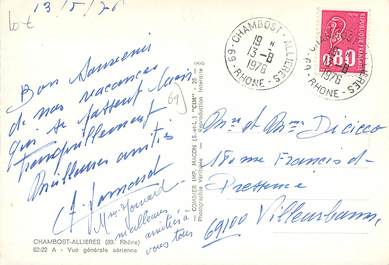 13/8/76
Bon Souvenir
de nos vacances
qui se passent bien
tranquillement
Meilleures amitiés
meilleures
amitiés à
vous tous
CHAMBOST-ALLIERES (69, Rhône)
62-22 A - Vue générale aérienne
COMBIER IMP. MACON (S.-et-L.) "CIM"
Photographie Véritable - Reproduction Interdite
69 - CHAMBOST-ALLIERES
19 H
13-8
1976
RHONE
0,80
Mr et Mme Dicicco
18 rue Francis de
Pressensé
69100 Villeurbanne